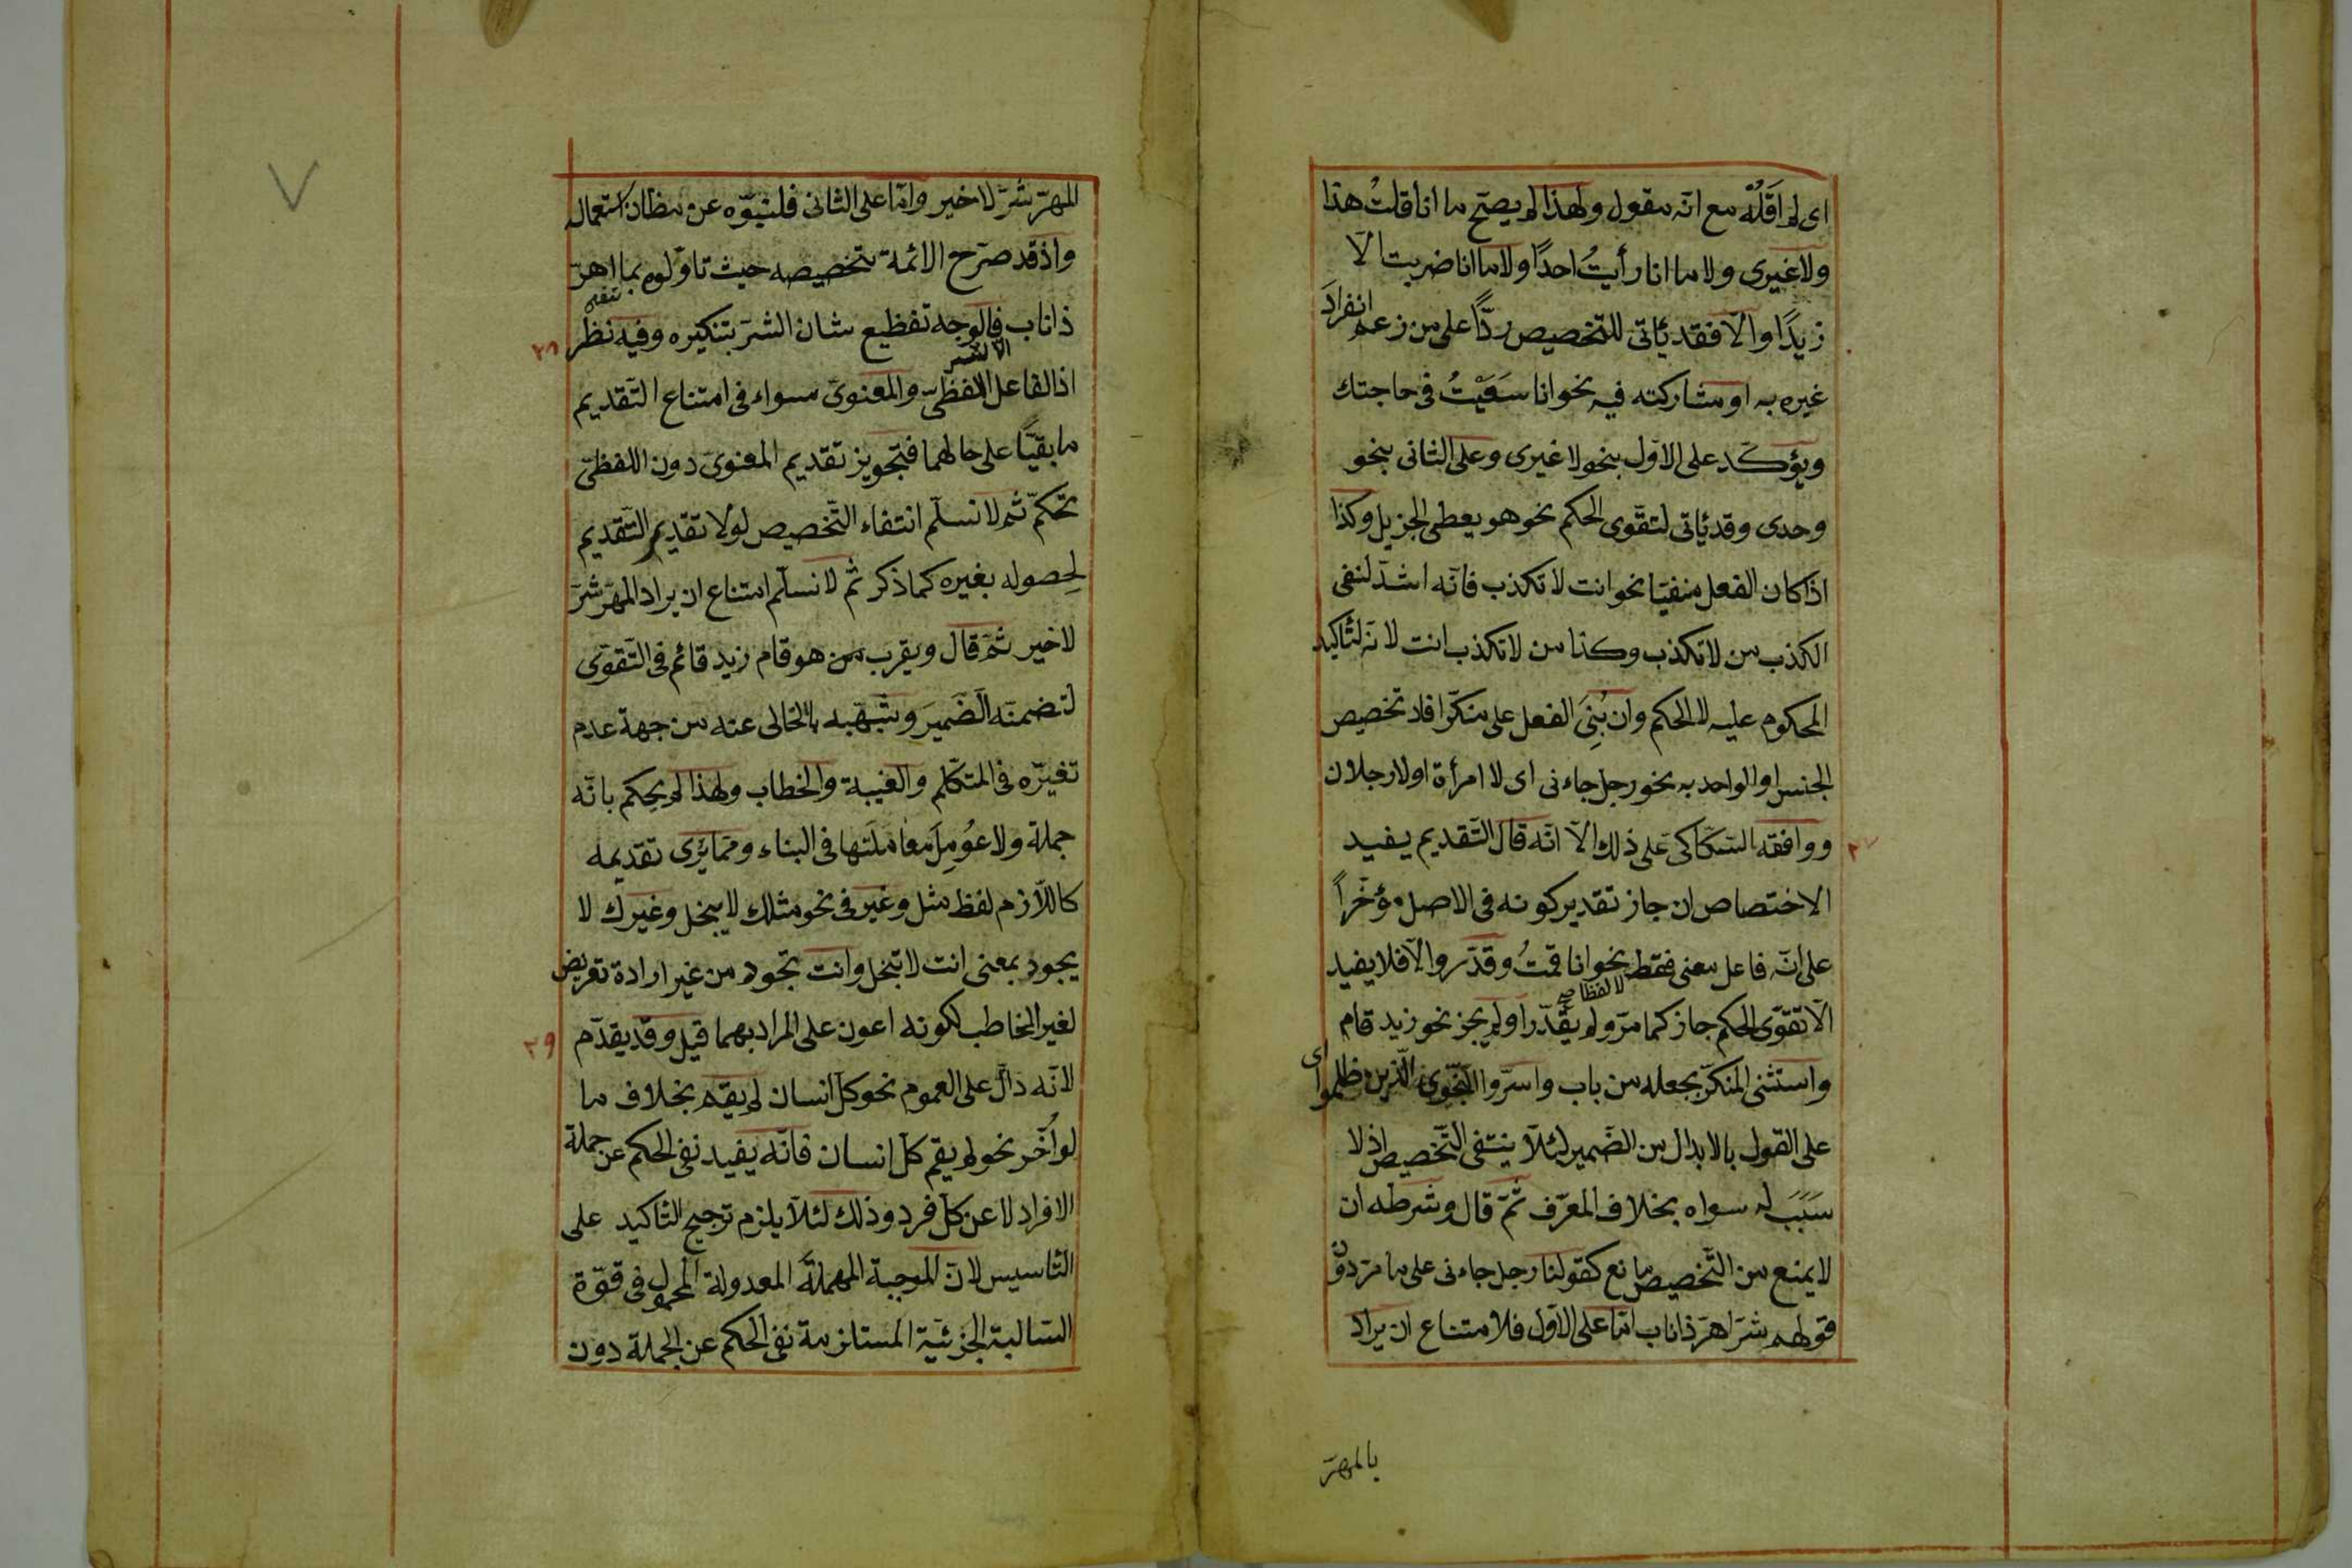 اى لم اَقُلْه مع انّه مقول ولهذا لم يصحّ ما انا قلتُ هذا
ولا غيرى ولا ما انا رأيتُ احدًا ولا ما انا ضربت الّا
زيدًا والّا فقد يأتى للتخصيص ردًّا على من زعم انفرادَ
غيره به او مشاركته فيه نحو انا سَعَيْتُ فى حاجتك
ويؤكّد على الاوّل بنحو لا غيرى وعلى الثانى بنحو
وحدى وقد يأتى لتقوّى الحكم نحو هو يعطى الجزيل وكذا
اذا كان الفعل منفيّا نحو انت لا تكذب فانّه اشدّ لنفى
الكذب من لا تكذب وكذا من لا تكذب انت لانّه لتأكيد
المحكوم عليه لا الحكم وان بُنِىَ الفعل على منكّر افاد تخصيص
الجنس او الواحد به نحو رجل جاءنى اى لا امرأة او لا رجلان
ووافقه السّكّاكى على ذلك الّا انّه قال التّقديم يفيد
٢٧
الاختصاص ان جاز تقدير كونه فى الاصل مؤخّراً
على انّه فاعل معنى فقط نحو انا قمتُ وقدّر والّا فلا يفيد
لا لفظا صح
الّا تقوّى الحكم جاز كما مرّ ولم يقدّر او لم يجز نحو زيد قام
واستثنى المنكّر بجعله من باب واسرّوا النّجوى الّذين ظلموا اى
على القول بالابدال من الضّمير لئلّا ينتفى التّخصيص اذ لا
سَبَبَ له سواه بخلاف المعرّف ثمّ قال وشرطه ان
لا يمنع من التّخصيص مانع كقولنا رجل جاءنى على ما مرّ دون
قولهم شرّ اهرّ ذا ناب امّا على الاوّل فلامتناع ان يراد
بالمهرّ
المهرّ شرّ لا خير وامّا على الثانى فلنبوّه عن مظانّ استعماله
واذ قد صرّح الائمة بتخصيصه حيث تاوّلوه بما اهرّ
ذا ناب فالوجه تفظيع شان الشرّ بتنكيره وفيه نظر
الّا شر
٢٨
اذ الفاعل اللفظىّ والمعنوىّ سواء فى امتناع التّقديم
ما بقيّا على حالهما فتجويز تقديم المعنوىّ دون اللفظىّ
تحكّم ثم لا نسلّم انتفاء التّخصيص لولا تقدير التّقديم
لحِصوله بغيره كما ذكر ثمّ لا نسلّم امتناع ان يراد المهرّ شرّ
لا خير ثمّ قال ويقرب من هو قام زيد قائم فى التّقوّى
لتضمنّه الضّميرَ وشبّهه بالخالى عنه من جهة عدم
تغيّره فى المتكّلم والغيبة والخطاب ولهذا لم يحكم بانّه
جملة ولا عُومِلَ معاملَتها فى البناء وممّا يُرى تقديمه
كاللّازم لفظ مثل وغير فى نحو مثلك لا يبخل وغيرك لا
يجود بمعنى انت لا تبخل وانت تجود من غير ارادة تعريض
لغير المخاطب لكونه اعون على المراد بهما قيل وقد يقدّم
٢٩
لانّه دالّ على العموم نحو كلّ انسان لم يقم بخلاف ما
لو اُخّر نحو لم يقم كلّ انسان فانّه يفيد نفى الحكم عن جملة
الافراد لا عن كلّ فرد وذلك لئلّا يلزم ترجيح التأكيد على
التأسيس لانّ الموجبة المهملة المعدولة المحمول فى قوّة
السّالبة الجزئيّة المستلزمة نفى الحكم عن الجملة دون